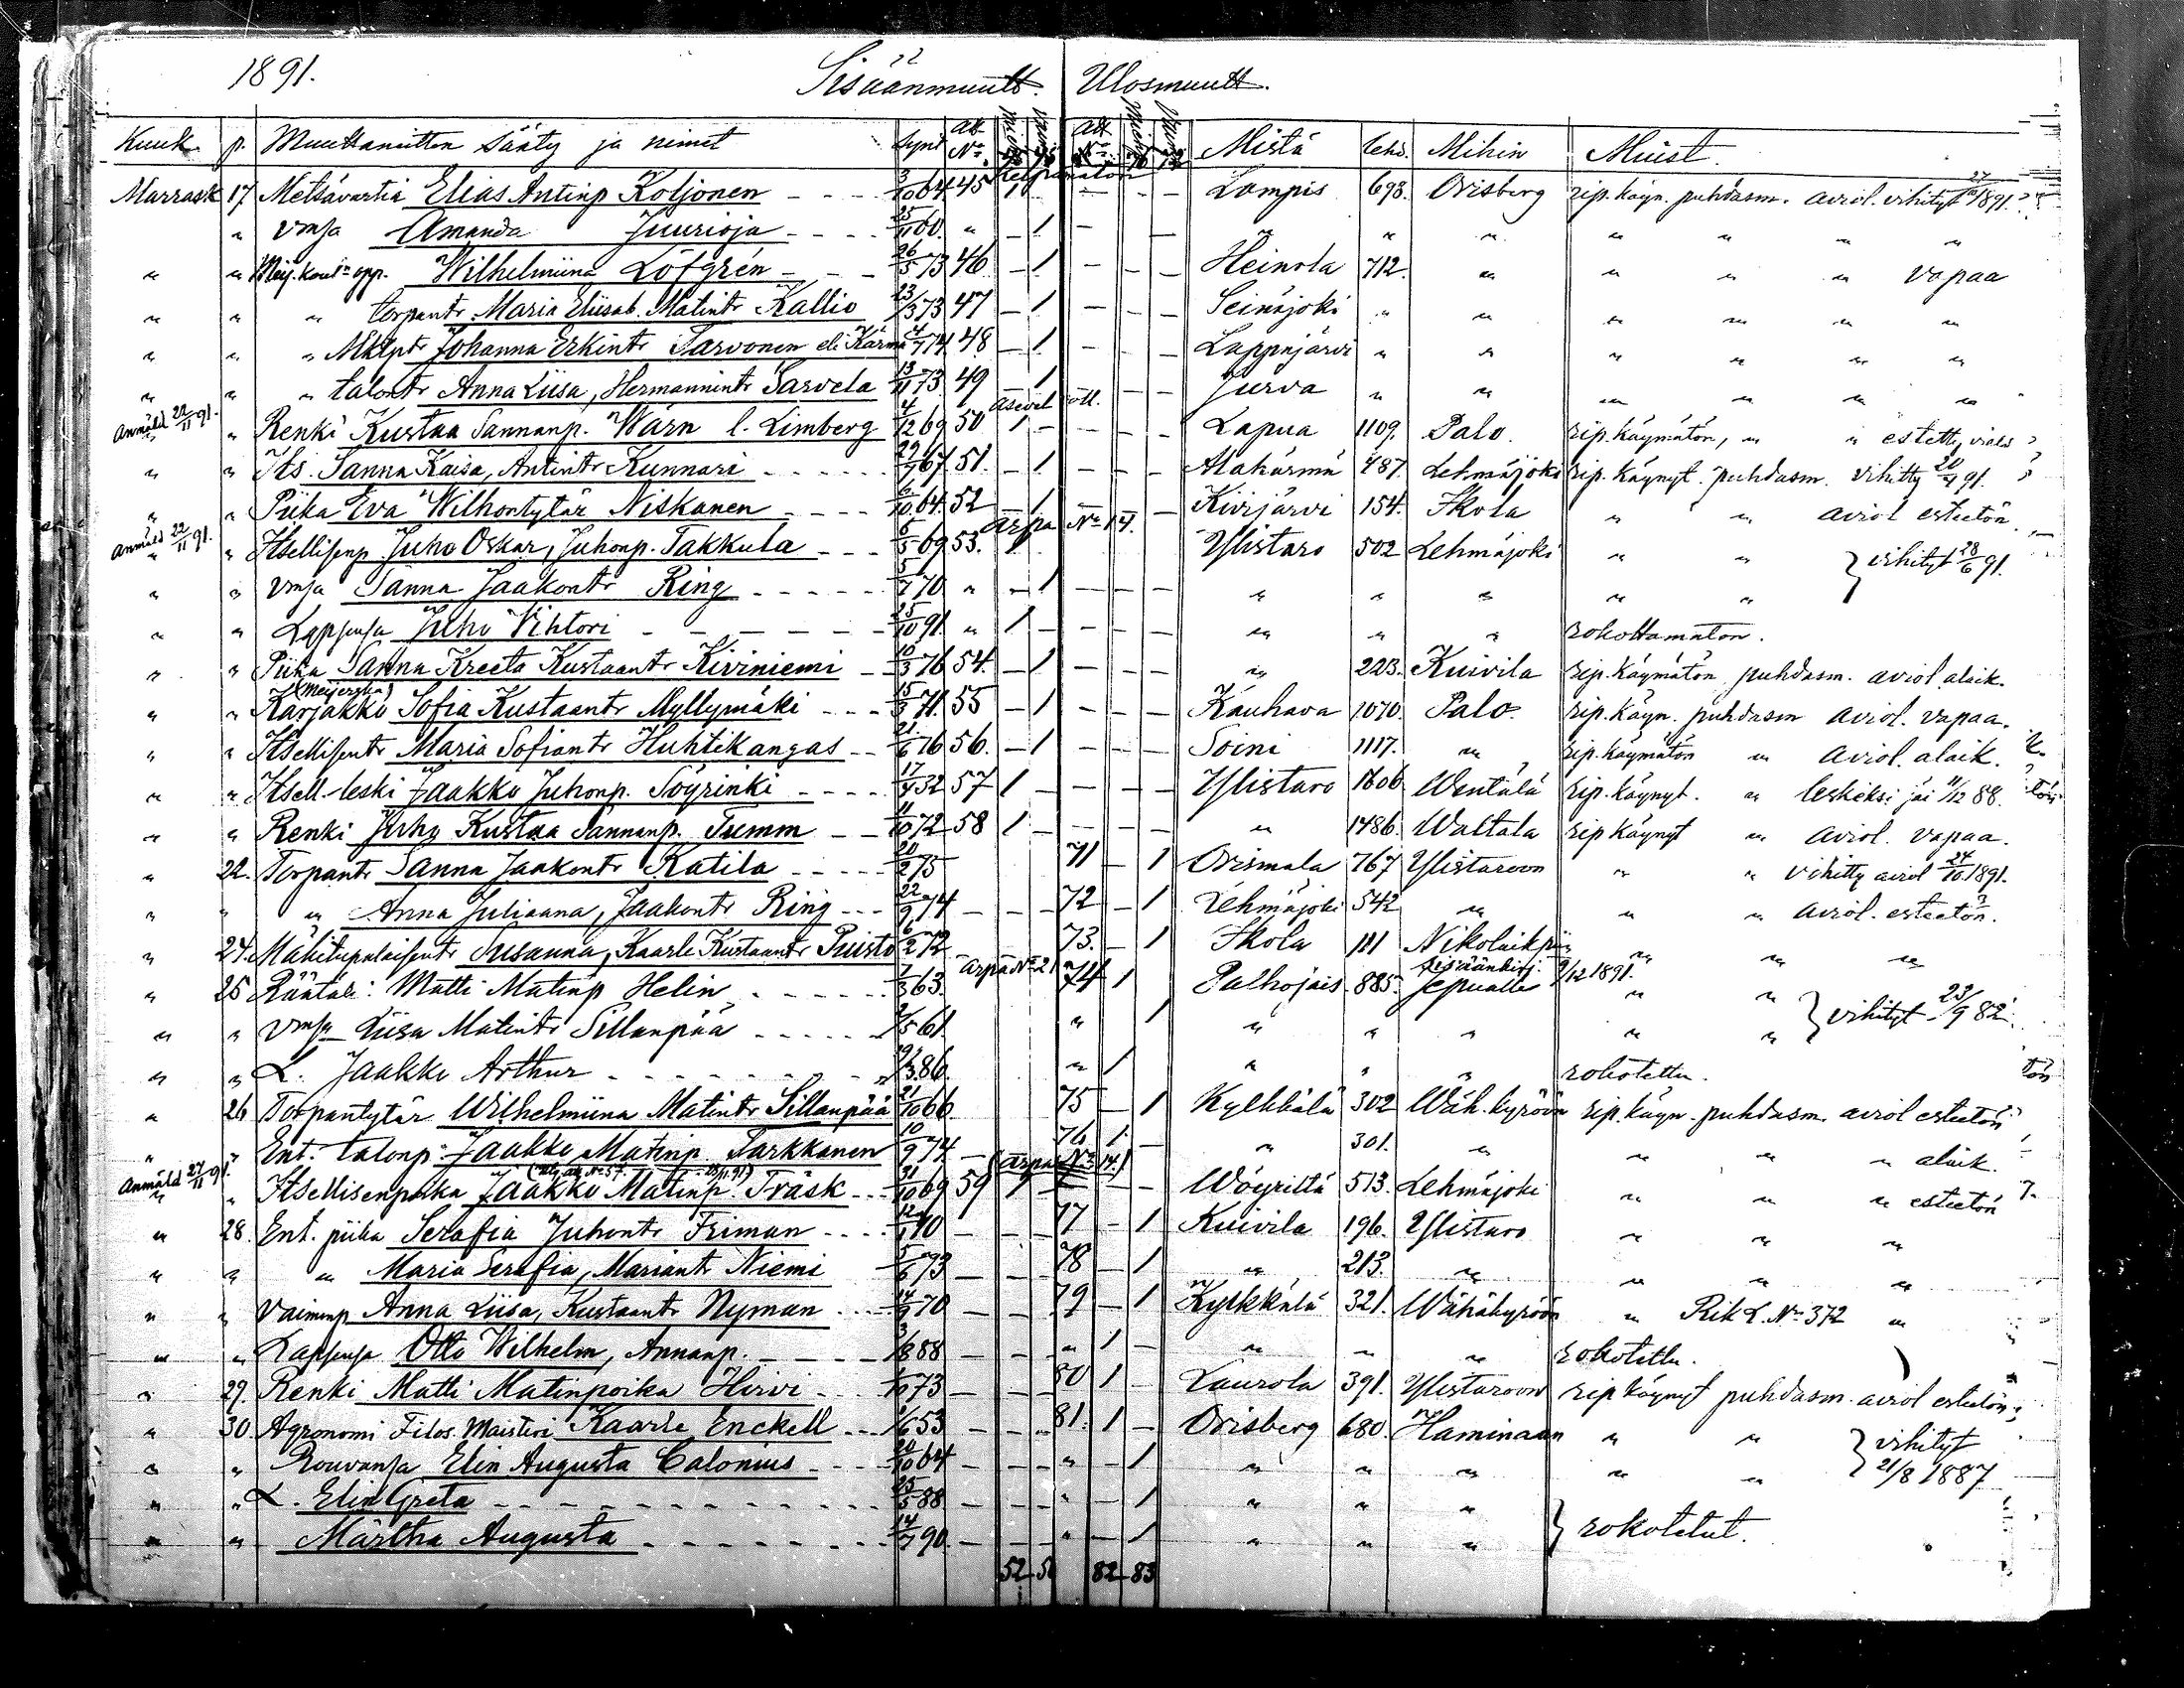 1891. Sisäänmuutt. Ulosmuutt.
Kuuk. p. Muuttanutten sääty ja nimet Synt Att No Att No Mistä Mihin Muist.
Marrask 17 Metsävartia Elias Antinp Koljonen 3/10 64 45 1 Lampis 693. Orisberg rip. käyn. puhdasm. aviol. vihityt 1891.
" Vmsa Amanda Juurioja 25/11 60. " 1 " " " " " " "
" " Meij. koul. opp. Wilhelmiina Löfgrén 26/5 73 46 1 Heinola 712. " " " " vapaa
" " " torpantr Maria Eliisab. Matintr Kallio 23/3 73 47 1 Seinäjoki " " " " " "
" " " Mklptr Johanna Erkintr Tarvonen eli Kärnä 4/7 74 48 1 Lappajärvi " " " " " "
" " " talontr Anna Liisa, Hermannintr Sarvela 13/11 73 49 1 Jurva " " " " " "
Anmäld 22/11 91. " Renki Kustaa Sannanp. Wärn l. Limberg 4/12 69 50 1 Lapua 1109. Palo. rip. käymätön, " " estetty
" " Its. Sanna Kaisa, Antintr Kunnari 29/9 67 51. 1 Alahärmä 487. Lehmäjoki rip. käynyt. puhdasm. vihitty 91.
" " Piika Eva Wilhontytär Niskanen 6/10 64 52 1 Kivijärvi 154. Ikola " " aviol esteetön
Anmäld 22/11 91. " Itsellisenp Juho Oskar, Juhonp. Takkula 5/5 69 53. 1 Arpa No 14. Ylistaro 502 Lehmäjoki " " } vihityt 28/6 91.
" " Vmsa Sanna Jaakontr Ring 5/7 70 " 1 " " " " "
" " Lapsensa Juho Vihtori 25/10 91. " 1 " " " rokottamaton.
" " Piika Sanna Kreeta Kustaantr Kiviniemi 10/3 76 54. 1 " 223. Kuivila rip. käymätön puhdasm. aviol alaik.
" " Karjakko (Meijerska) Sofia Kustaantr Myllymäki 15/5 71. 55 1 Kauhava 1070. Palo. rip. käyn. puhdasm aviol. vapaa.
" " Itsellisentr Maria Sofiantr Huhtikangas 21/6 76 56. 1 Soini 1117. " rip. käymätön " aviol. alaik.
" " Itsell. leski Jaakko Juhonp. Söyrinki 17/4 32 57 1 Ylistaro 1606 Wentälä rip. käynyt. " leskeksi jäi 11/12 88.
" " Renki Juho Kustaa Sannanp. Tumm 11/10 72 58 1 " 1486. Waltala rip käynyt " aviol. vapaa.
" 22. Torpantr Sanna Jaakontr Katila 20/2 75 71 1 Orismala 767 Ylistaroon " " vihitty aviol 24/10 1891.
" " " Anna Juliaana, Jaakontr Ring 22/9 74 72 1 Lehmäjoki 542 " " " aviol. esteetön.
" 24. Mäkitupalaisentr Susanna, Kaarle Kustaantr Puisto 6/2 72 73. 1 Ikola 111 Nikolaik " " "
" 25 Räätäli Matti Matinp Helin 7/3 63. Arpa No 21 74 1 Palhojais 885. Jepualle sisäänkirj. 9/12 1891. " " } vihityt 23/9 82.
" " Vmsa Liisa Matintr Sillanpää 2/5 61. " 1 " " " " "
" " L. Jaakko Arthur /3 86. " 1 " " " rokotettu.
" 26 Torpantytär Wilhelmiina Matintr Sillanpää 21/10 66. 75 1 Kylkkälä 302 Wäh. kyröön rip. käyn. puhdasm. aviol esteetön
" " Ent. talonp. Jaakko Matinp Tarkkanen 10/9 74. 76 1. " 301. " " " " alaik.
Anmäld 27/11 91. " Itsellisenpoika Jaakko Matinp. Träsk 31/10 69 59 1 (Arpa No 14.) Wöyriltä 513. Lehmäjoki " " " esteetön
" 28. Ent. piika Serafia Juhontr Friman 12/1 70 77 1 Kuivila 196. Ylistaro " " "
" " " Maria Serafia, Mariantr Niemi 5/6 73 78 1 " 213. " " " "
" " Vaimonp Anna Liisa, Kustaantr Nyman 14/9 70 79 1 Kylkkälä 321. Wähäkyröön " Rik L. No 372 "
" " Lapsensa Otto Wilhelm, Annanp. 3/8 88 " 1 " " " rokotettu.
" 29. Renki Matti Matinpoika Hirvi /10 73 80 1 Laurola 391. Ylistaroon rip käynyt puhdasm. aviol esteetön
" 30. Agronomi Filos. Maisteri Kaarle Enckell /6 53 81. 1 Orisberg 680. Haminaan " " } vihityt
" " Rouvansa Elin Augusta Calonius 20/10 64 " 1 " " " " " 21/8 1887
" " L. Elin Greta 25/5 88 " 1 " " " } rokotetut.
" " Märtha Augusta 14/7 90. " 1 " " "
52 82 83